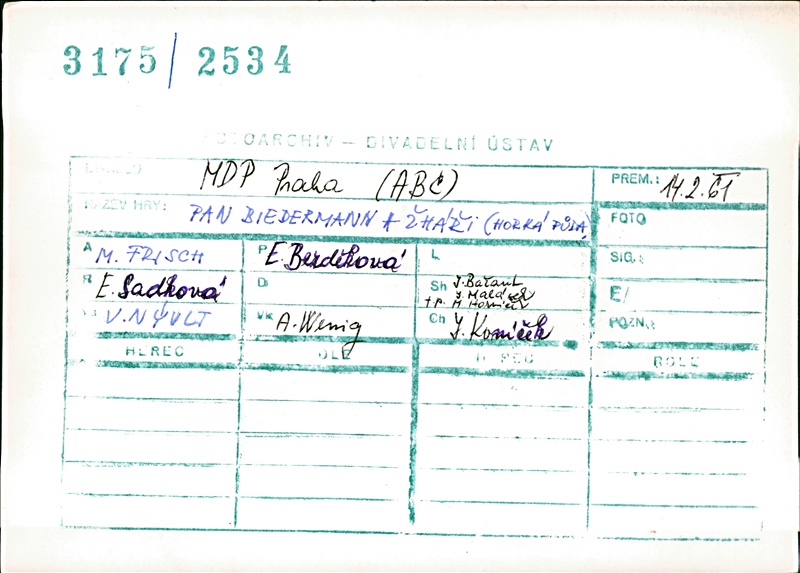 3175 / 2534
FOTOARCHIV – DIVADELNÍ ÚSTAV
MDP Praha (ABC)
PREM.: 14.2.61
NÁZEV HRY: PAN BIEDERMANN A ŽHÁŘI (HORKÁ PŮDA)
FOTO
A M. FRISCH
P E. Bezděková
L
SIG.:
R E. Sadková
D
Sh J. Bažant
J. Malásek
+ p. M. Horníček
E/
V. NÝVLT
Vk A. Wenig
Ch J. Koníček
POZN.:
HEREC
ROLE
HEREC
ROLE